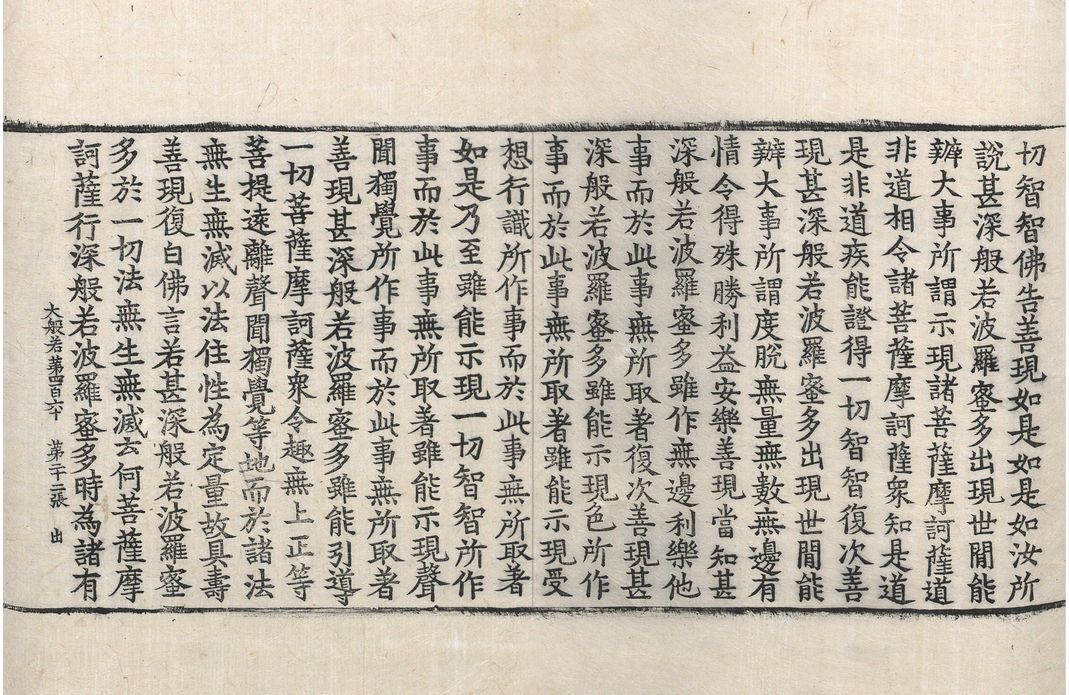 切智智佛告善現如是如是如汝所
說甚深般若波羅蜜多出現世間能
辦大事所謂示現諸菩薩摩訶薩道
非道相令諸菩薩摩訶薩衆知是道
是非道疾能證得一切智智復次善
現甚深般若波羅蜜多出現世間能
辦大事所謂度脫無量無數無邊有
情令得殊勝利益安樂善現當知甚
深般若波羅蜜多雖作無邊利樂他
事而於此事無所取著復次善現甚
深般若波羅蜜多雖能示現色所作
事而於此事無所取著雖能示現受
想行識所作事而於此事無所取著
如是乃至雖能示現一切智智所作
事而於此事無所取著雖能示現聲
聞獨覺所作事而於此事無所取著
善現甚深般若波羅蜜多雖能引導
一切菩薩摩訶薩衆令趣無上正等
菩提遠離聲聞獨覺等地而於諸法
無生無滅以法住性為定量故具壽
善現復白佛言若甚深般若波羅蜜
多於一切法無生無滅云何菩薩摩
訶薩行深般若波羅蜜多時為諸有
大般若第四百六十 第二十二張 出